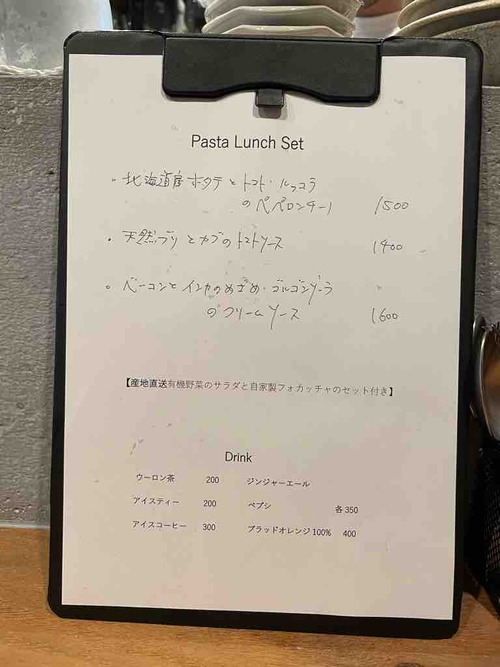 Pasta Lunch Set
・北海道産ホタテとトマト・ルッコラ
のペペロンチーノ 1500
・天然ブリとカブのトマトソース 1400
・ベーコンとインカのめざめ・ゴルゴンゾーラ
のクリームソース 1600
【産地直送有機野菜のサラダと自家製フォカッチャのセット付き】
Drink
ウーロン茶 200 ジンジャーエール
アイスティー 200 ペプシ 各350
アイスコーヒー 300 ブラッドオレンジ100% 400